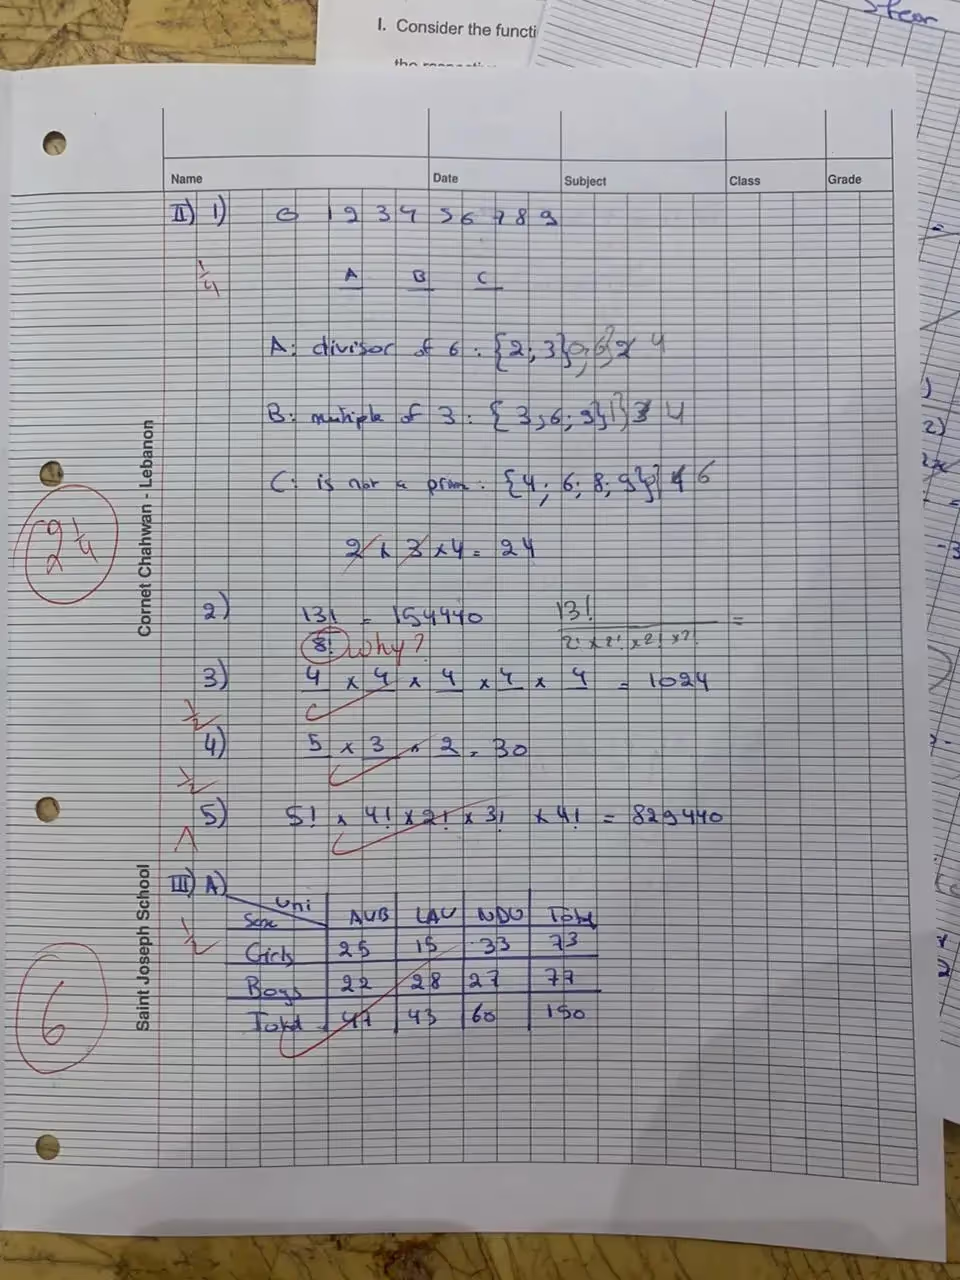 Stear
I. Consider the functi
Name Date Subject Class Grade
II) 1) 0 1 2 3 4 5 6 7 8 9
1/4
A B C
A: divisor of 6 : {2; 3} 2 4
B: multiple of 3 : {3; 6; 9} 1} 3 4
C: is not a prim : {4; 6; 8; 9} 4 6
2 x 3 x 4 = 24
2 1/4
2) 13! = 154440 13! =
8! why? 2! x 2! x 2! x 2!
3) 4 x 4 x 4 x 4 x 4 = 1024
1/2
4) 5 x 3 x 2 = 30
1/2
5) 5! x 4! x 2! x 3! x 4! = 829440
1
III) A) Uni
Sex AUB LAU NDU Total
1/2
Girls 25 15 33 73
Boys 22 28 27 77
Total 47 43 60 150
6
Cornet Chahwan - Lebanon
Saint Joseph School